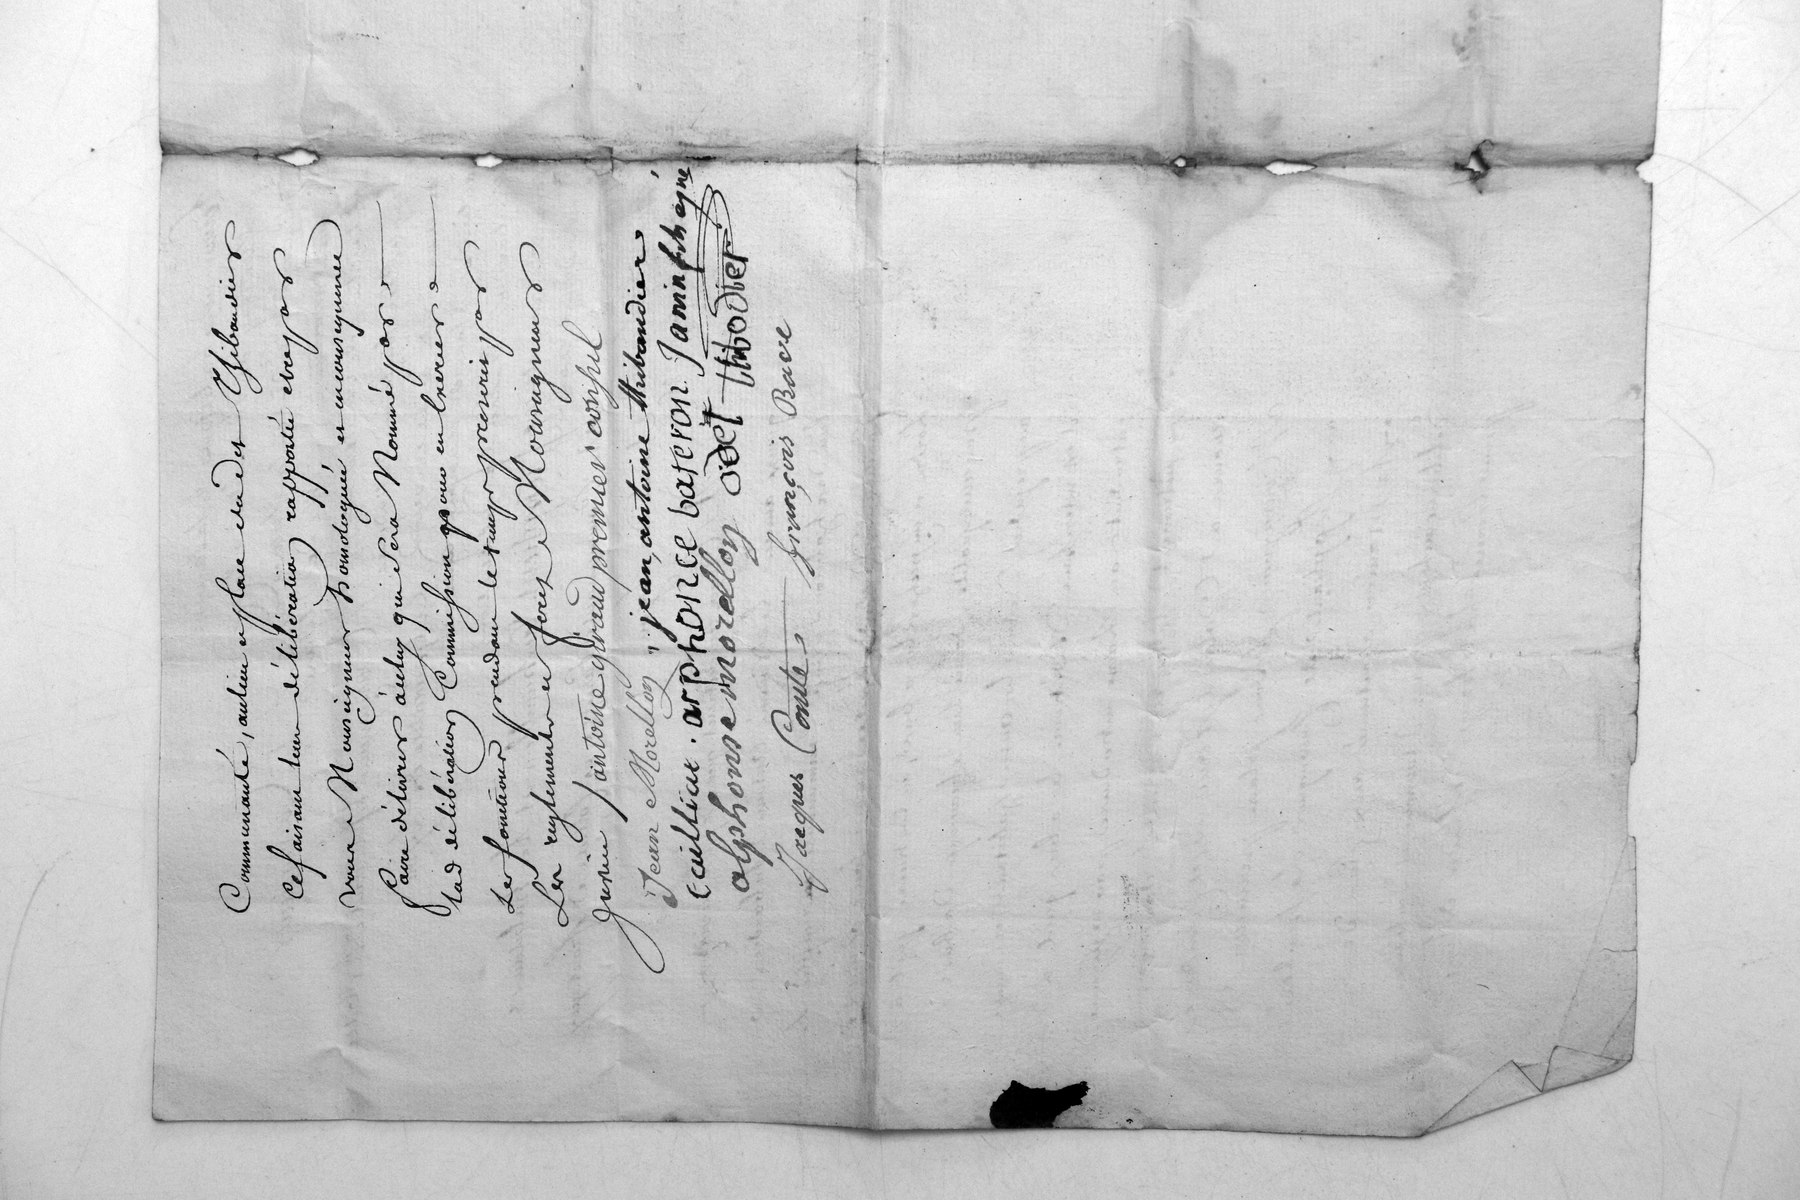 Communauté, au lieu et place dudit Thibaudier
Ce faisant leur délibération rapportée cy
votre Monseigneur homologuée et en conséquence
faire délivrer à celuy qui sera Nommé par
lad délibération Commission pour en Exercer
Les fonctions pendant le temps prescrit par
Les reglements et ferez Monseigneur
justice / antoine giraud premier consul
Jean Morellon jean antoine thibaudier
cuilliat. arphonce bateron Janin
alphonse morellon thibodier
Jacques Comte françois Bave